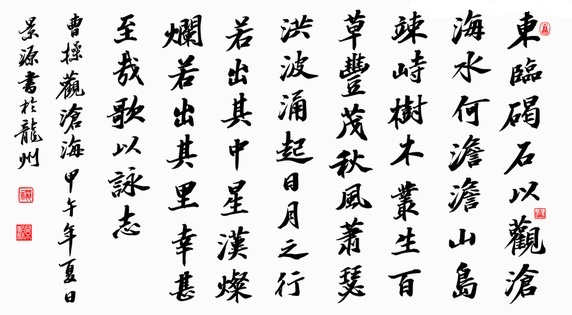 東臨碣石以觀滄
海水何澹澹山島
竦峙樹木叢生百
草豐茂秋風蕭瑟
洪波涌起日月之行
若出其中星漢燦
爛若出其里幸甚
至哉歌以詠志
曹操觀滄海甲午年夏日
景源書於龍州